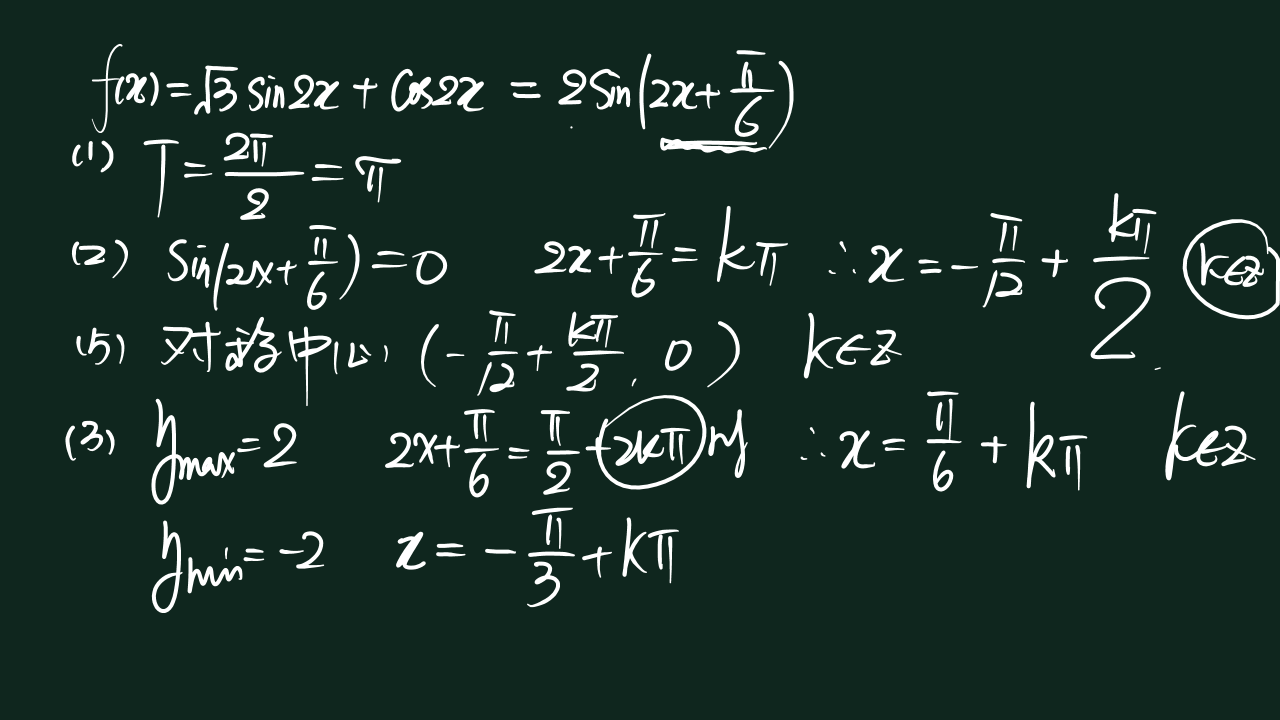 f(x)=√3 sin2x + cos2x = 2sin(2x+π/6)
(1) T=2π/2=π
(2) Sin(2x+π/6)=0 2x+π/6=kπ ∴x=-π/12+kπ/2 k∈z
(5) 对称中心 (-π/12+kπ/2, 0) k∈z
(3) ymax=2 2x+π/6=π/2+2kπ 时 ∴x=π/6+kπ k∈z
ymin=-2 x=-π/3+kπ